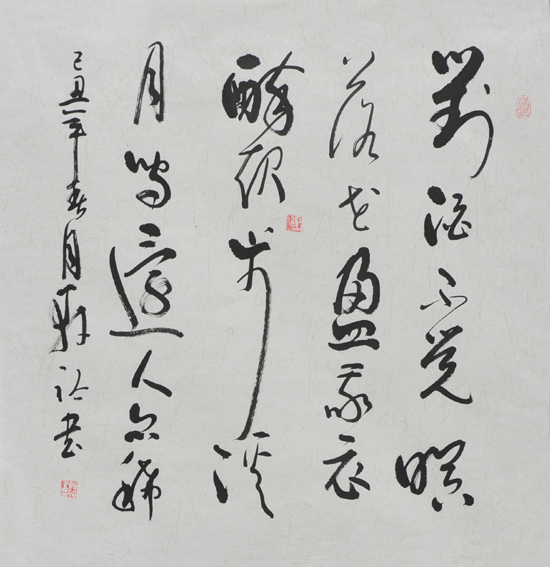 對酒不覺暝
落花盈我衣
醉起步溪
月鳥還人亦稀
己丑年春月書